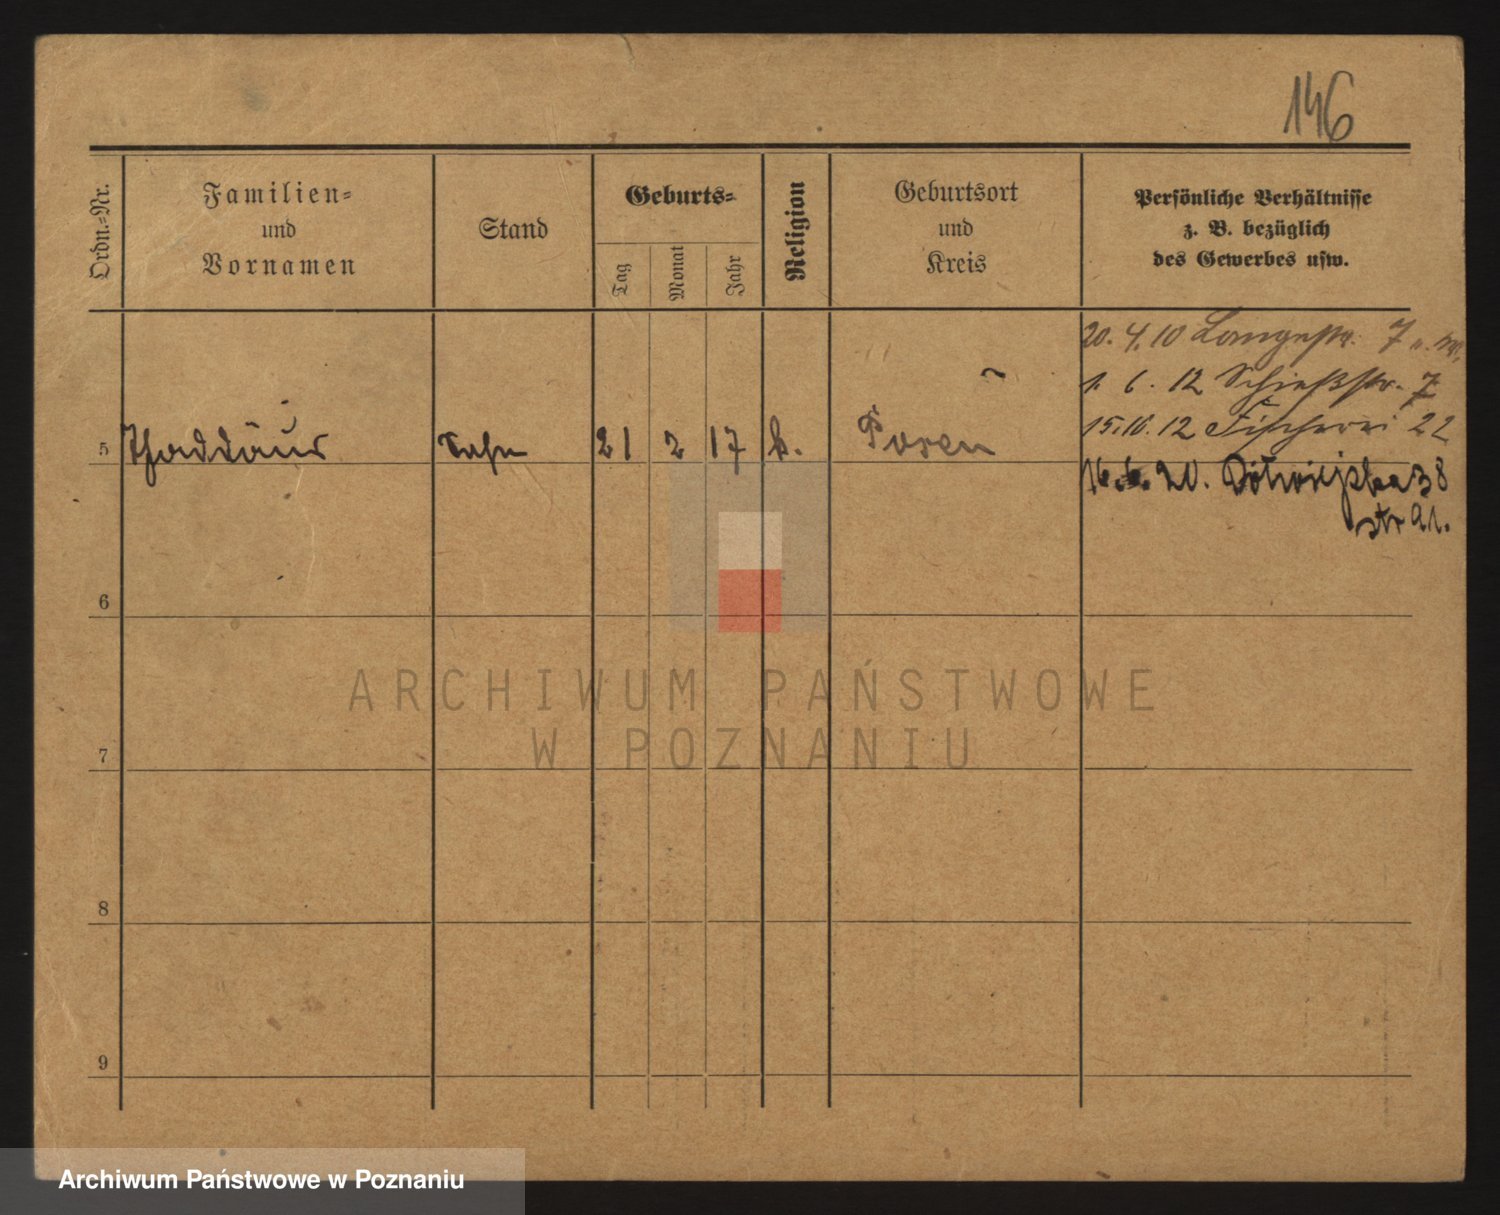 146
Ordn.=Nr.
Familien=
und
Vornamen
Stand
Geburts=
Tag
Monat
Jahr
Religion
Geburtsort
und
Kreis
Persönliche Verhältnisse
z. B. bezüglich
des Gewerbes usw.
20. 4. 10 Langestr. 7
1. 6. 12 Schießstr. 7
15.10.12 Fischerei 22
5 Thaddäus Sohn 21 2 17 k. Posen
20. Półwiejska 38
str 21.
6
7
8
9
ARCHIWUM PAŃSTWOWE
W POZNANIU
Archiwum Państwowe w Poznaniu